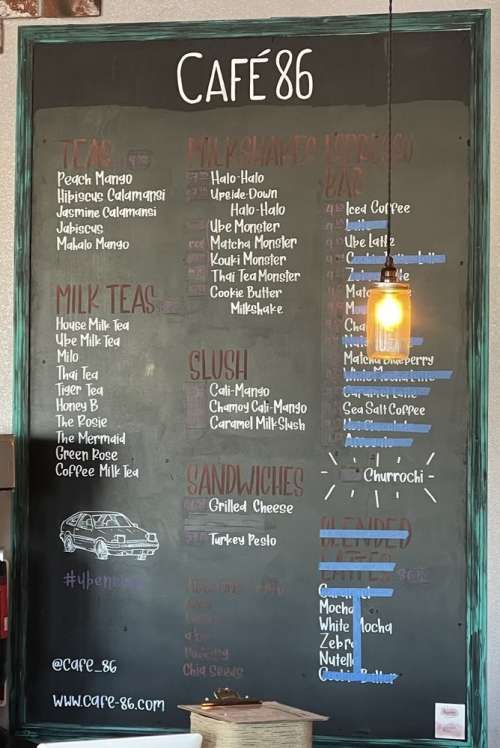 CAFÉ 86
TEAS
Peach Mango
Hibiscus Calamansi
Jasmine Calamansi
Jabiscus
Mahalo Mango
MILK TEAS
House Milk Tea
Ube Milk Tea
Milo
Thai Tea
Tiger Tea
Honey B
The Rosie
The Mermaid
Green Rose
Coffee Milk Tea
@cafe_86
www.cafe-86.com
MILKSHAKES
Halo-Halo
Upside-Down
Halo-Halo
Ube Monster
Matcha Monster
Kouki Monster
Thai Tea Monster
Cookie Butter
Milkshake
SLUSH
Cali-Mango
Chamoy Cali-Mango
Caramel Milk Slush
SANDWICHES
Grilled Cheese
Turkey Pesto
Pudding
Chia Seeds
ESPRESSO
BAR
Iced Coffee
Latte
Ube Latte
Matcha Blueberry
White Mocha Latte
Caramel Latte
Sea Salt Coffee
Hot Chocolate
Affogato
Churrochi
BLENDED
LATTES
Caramel
Mocha
White Mocha
Zebra
Nutella
Cookie Butter